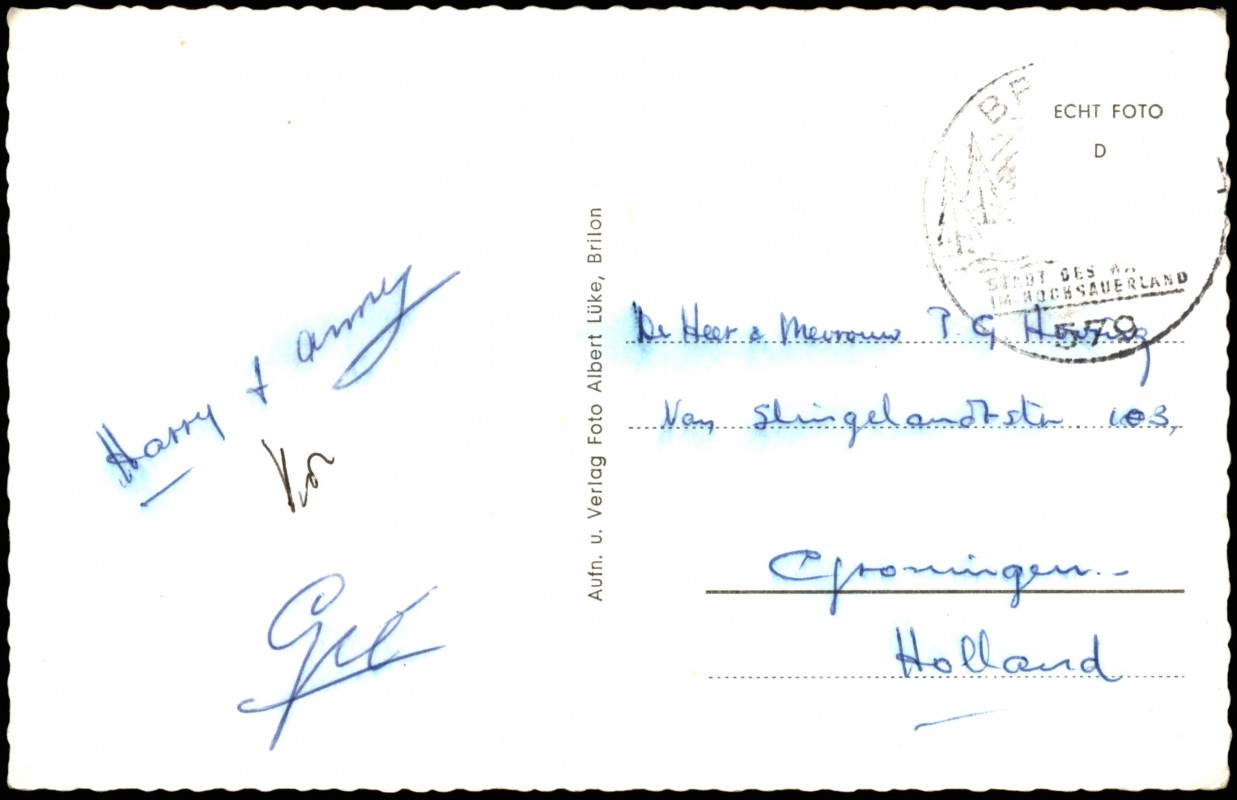 Harry + Anny
Gré
Aufn. u. Verlag Foto Albert Lüke, Brilon
ECHT FOTO
D
STADT DES
IM HOCHSAUERLAND
579
De Heer & Mevrouw P. G
Van Slingelandtstr 103,
Groningen.-
Holland